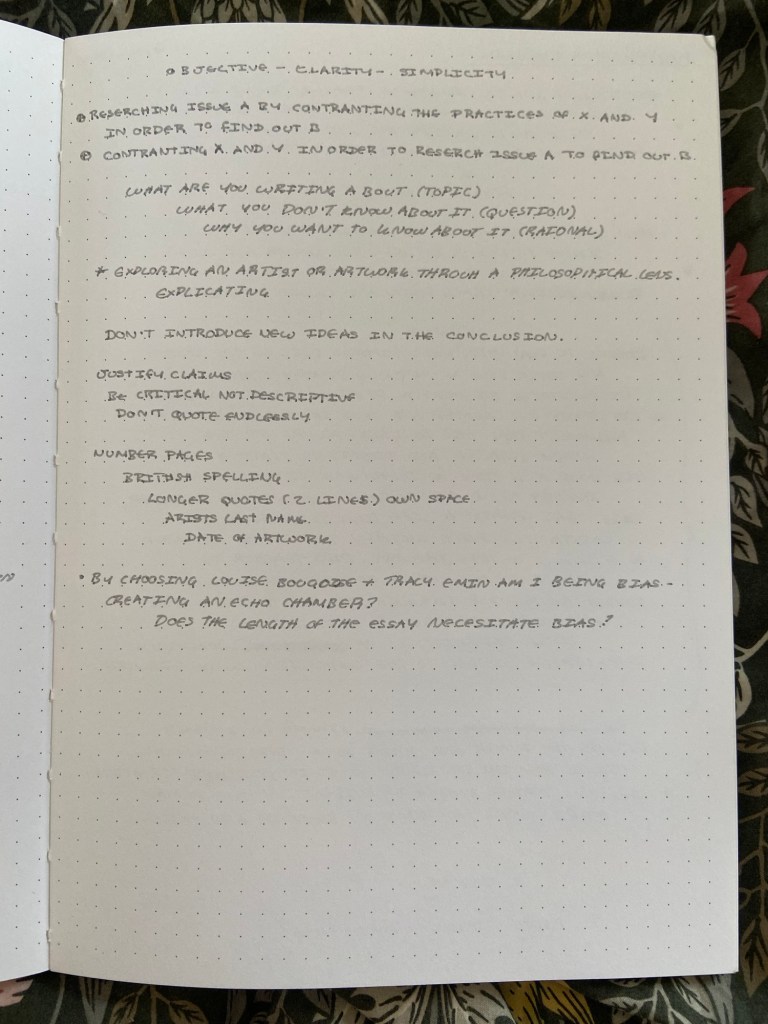 OBJECTIVE - CLARITY - SIMPLICITY
RESERCHING ISSUE A BY CONTRANTING THE PRACTICES OF X AND Y
IN ORDER TO FIND OUT B
CONTRANTING X AND Y IN ORDER TO RESERCH ISSUE A TO FIND OUT B.
WHAT ARE YOU WRITING ABOUT (TOPIC)
WHAT YOU DON'T KNOW ABOUT IT (QUESTION)
WHY YOU WANT TO KNOW ABOUT IT (RAIONAL)
* EXPLORING AN ARTIST OR ARTWORK THROUGH A PHILOSOPHICAL LENS.
EXPLICATING
DON'T INTRODUCE NEW IDEAS IN THE CONCLUSION.
JUSTIFY CLAIMS
BE CRITICAL NOT DESCRIPTIVE
DON'T QUOTE ENDLESSLY
NUMBER PAGES
BRITISH SPELLING
LONGER QUOTES (2 LINES) OWN SPACE
ARISTS LAST NAME
DATE OF ARTWORK
• BY CHOOSING LOUISE BOUGOISE + TRACY EMIN AM I BEING BIAS -
CREATING AN ECHO CHAMBER?
DOES THE LENGTH OF THE ESSAY NECESITATE BIAS?